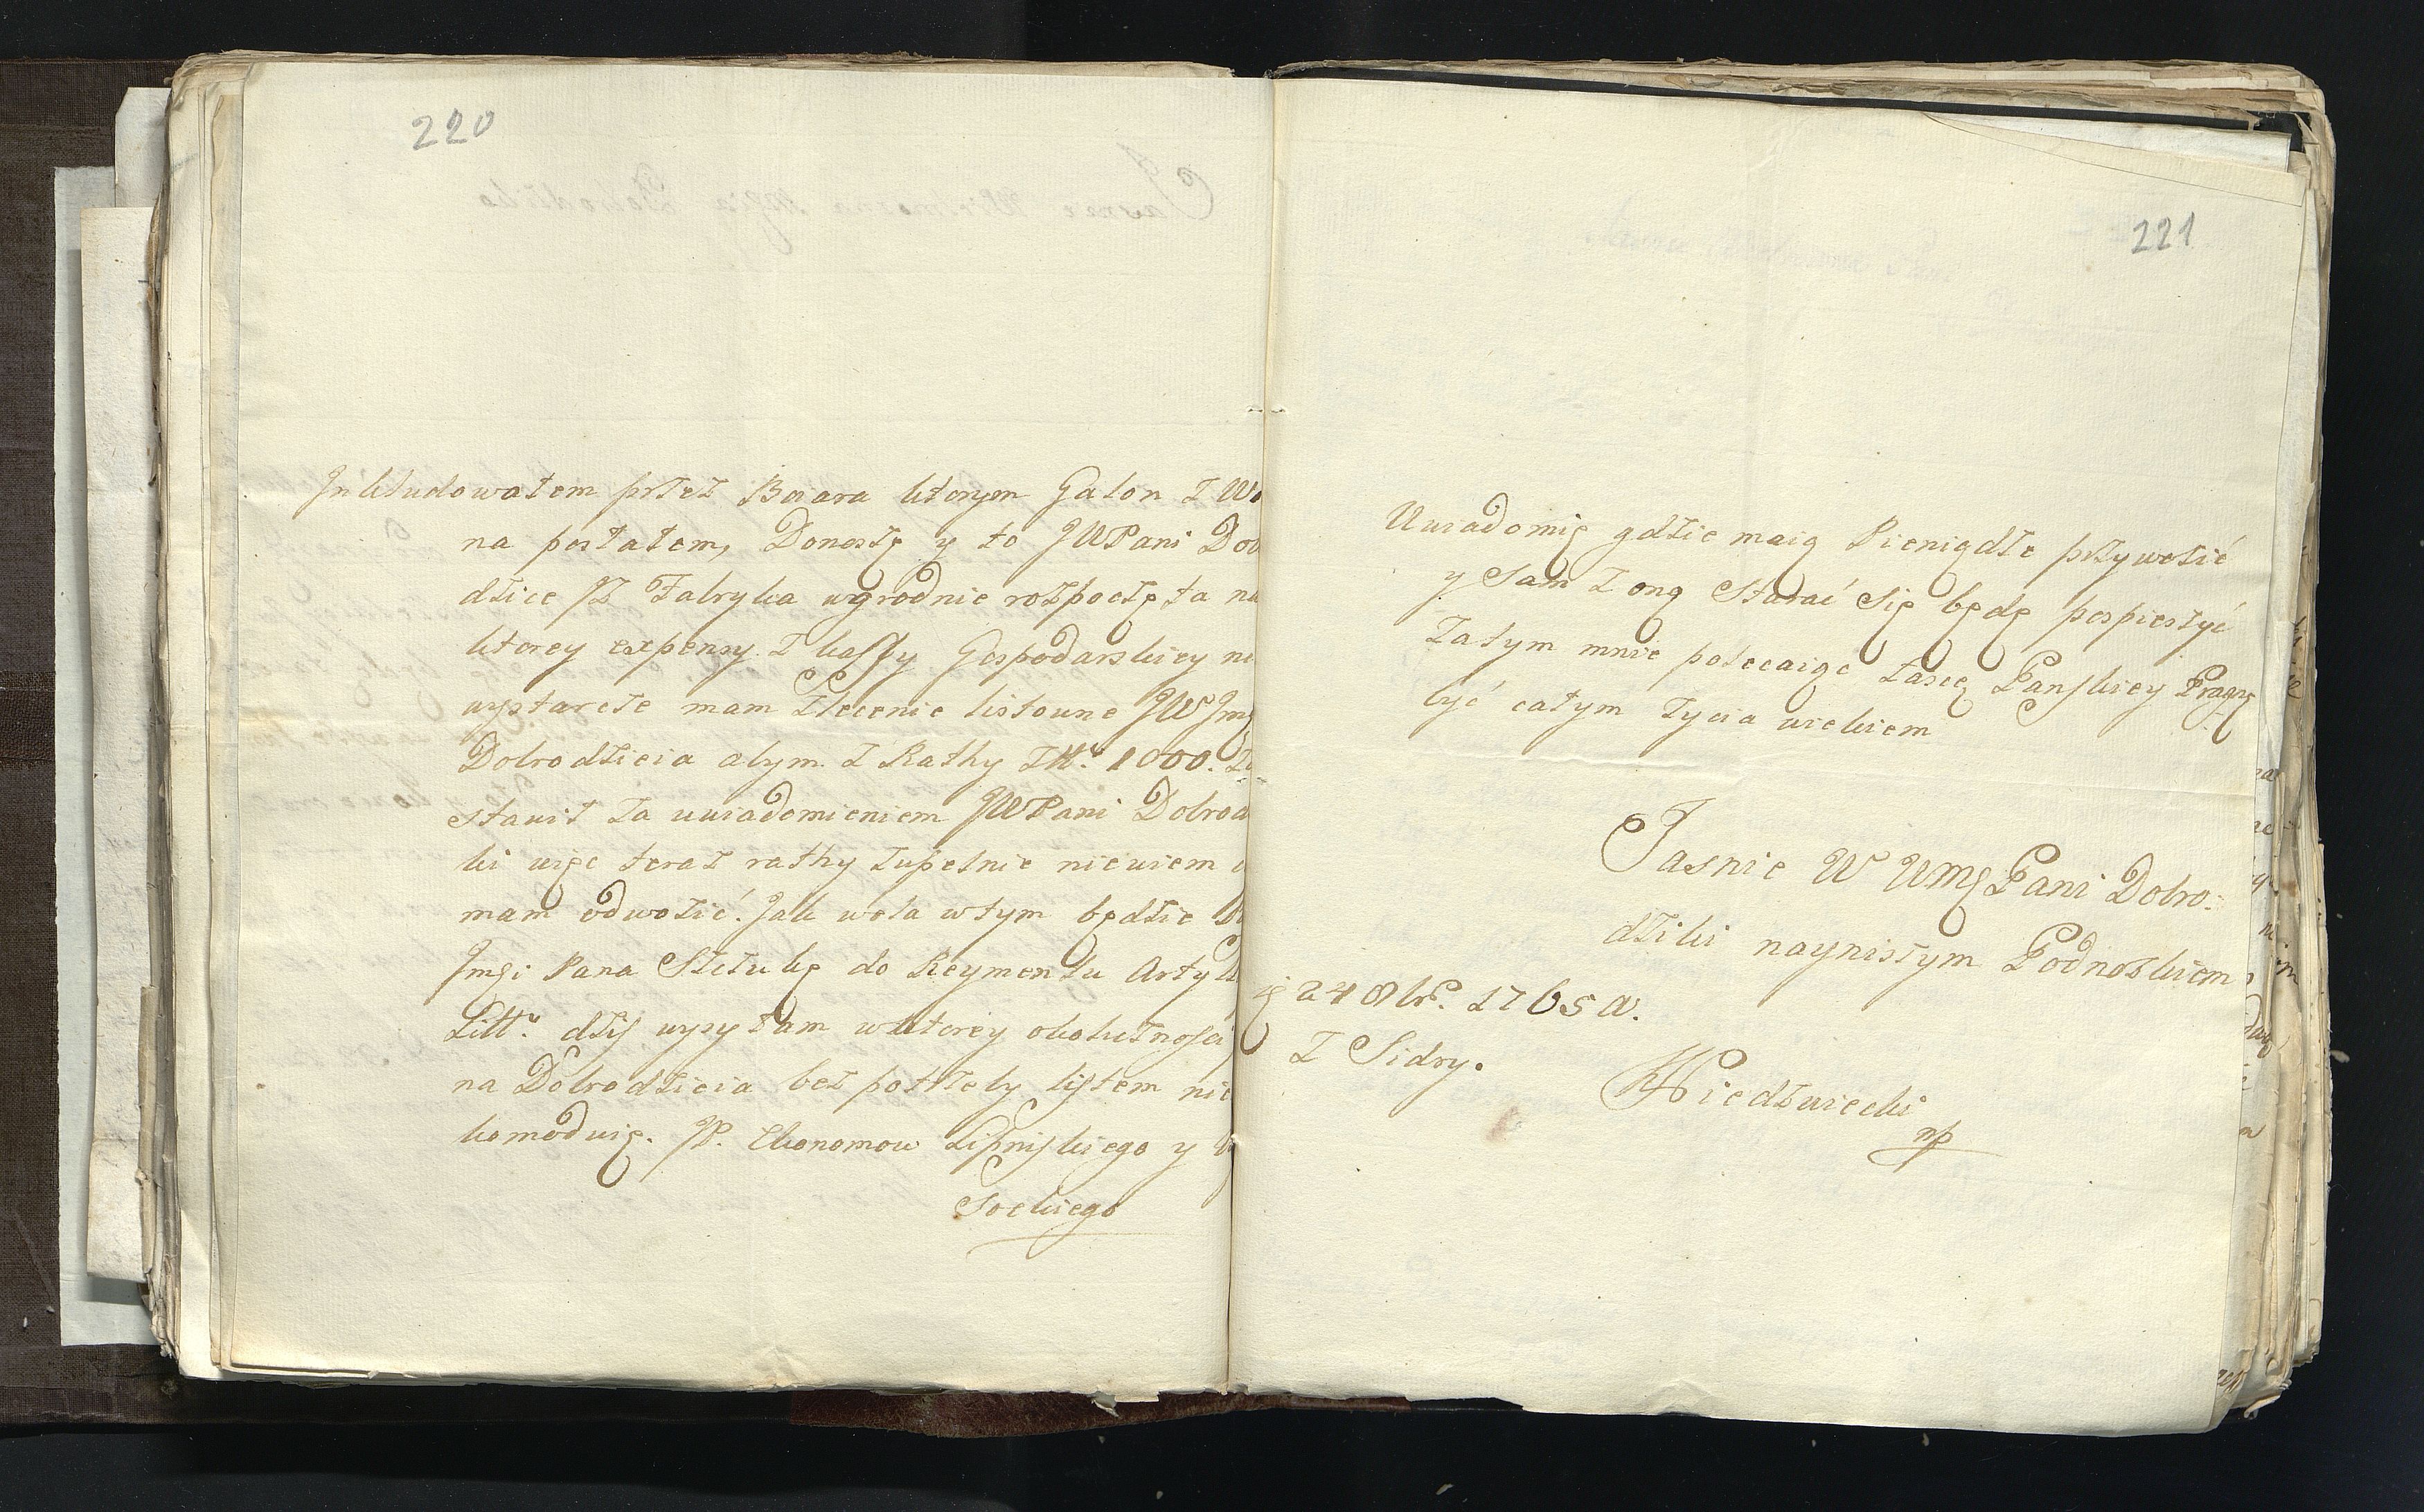 220
Inkludowałem przez Boiara ktorym Galon z Wo
na posłałem, Donoszę y to JWPani Dob
dzice Iż Fabryka wgrodnie rozpoczęta na
ktorey expensy z kassy Gospodarskiey ni
wystarcze mam Zlecenie listowne JWJmę
Dobrodzieia abym z Rathy zł. 1000. Zo
stawił za uwiadomieniem JWPani Dobrod
ki więc teraz rathy zupełnie niewiem
mam odwozić. Jak wola wtym będzie
Jmści Pana Sztukę do Reymentu Artyl
Litt. dziś wysyłam wktorey okolicznosci
na Dobrodzieia bez potrzeby listem nie
komoduię. JP. Ekonomow Lipniskiego y
Sockiego
221
Uwiadomię gdzie maią Pieniądze przywozić
y Sam z oną Starać Się będę pospieszyć
Zatym mnie polecaiąc Łascę Panskiey Pragnę
być całym życia wiekiem
Jasnie W WMę Pani Dobro:
dziki nayniszym Podnozkiem
24 8br. 1765 a.
z Sidry.
Niedzwiecki
mp